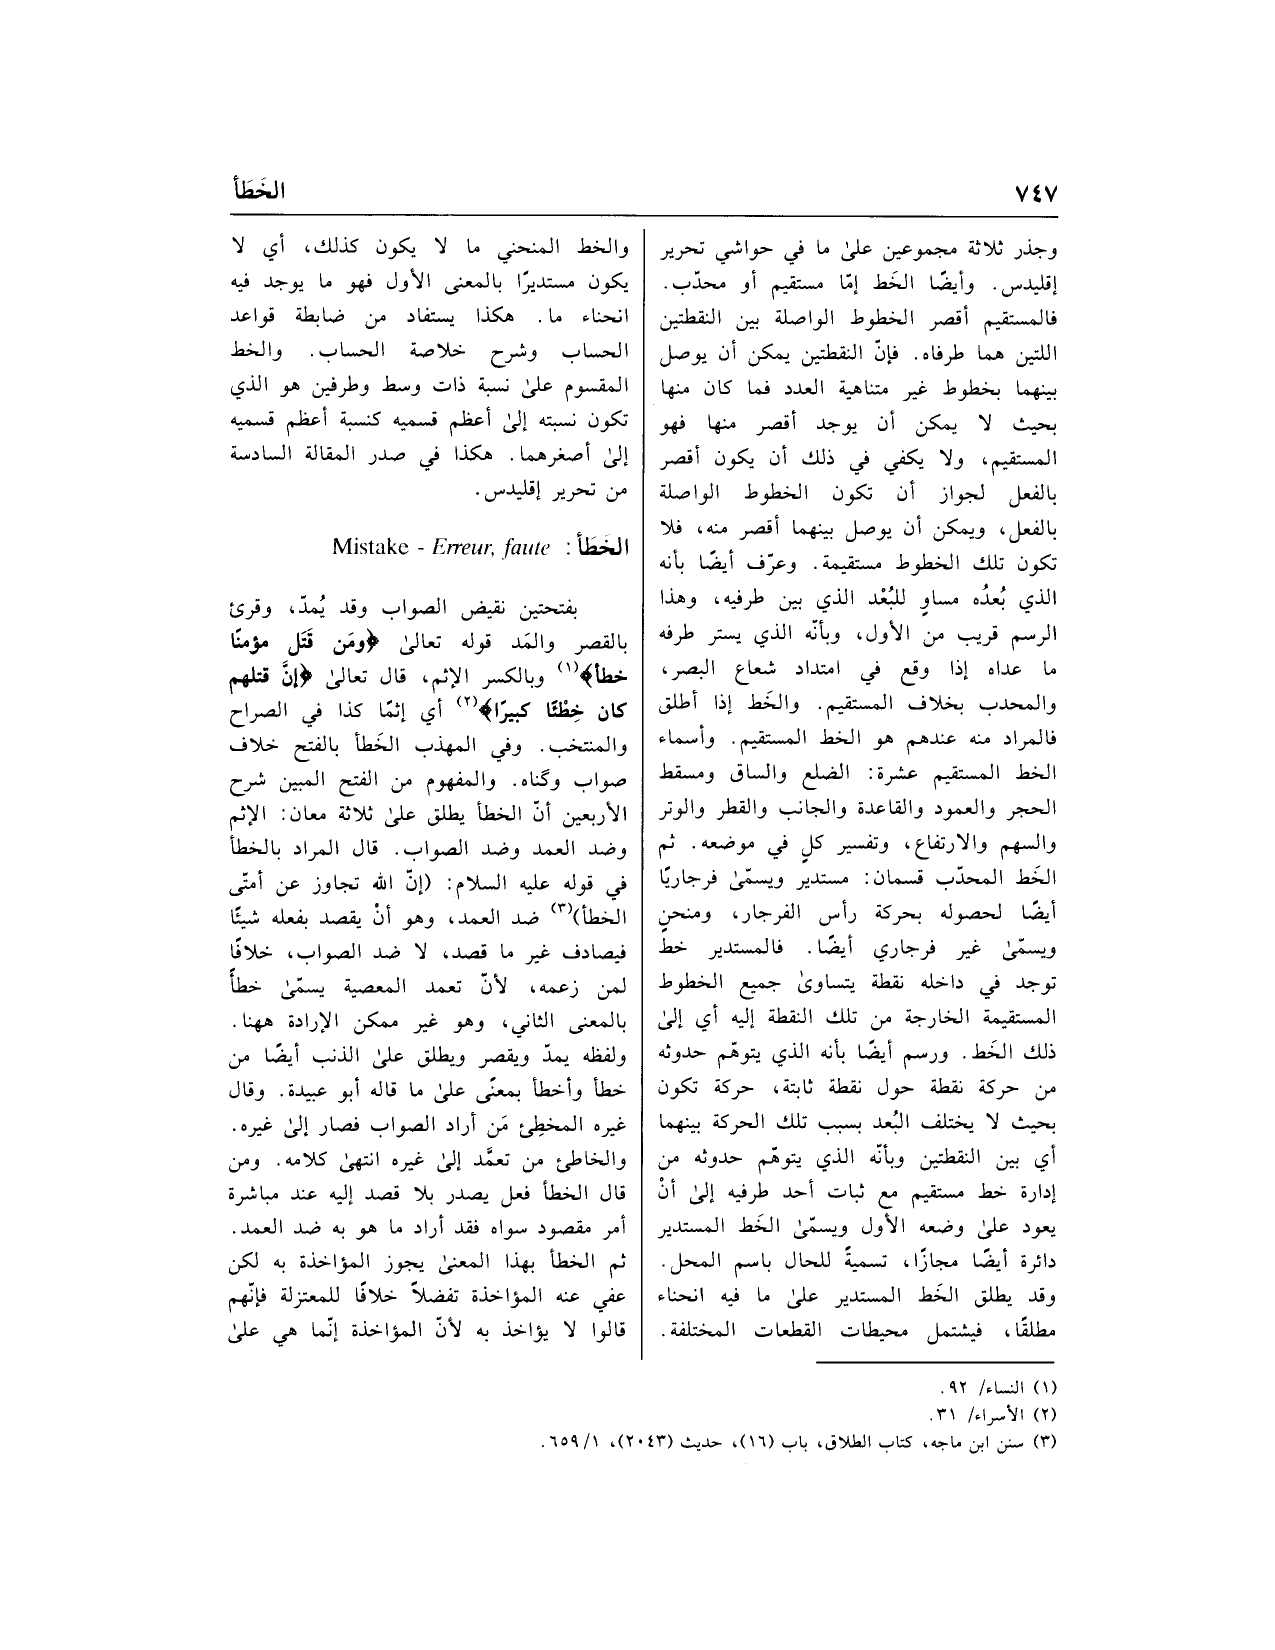 ٧٤٧
الخَطَأ
وجذر ثلاثة مجموعين علىٰ ما في حواشي تحرير
إقليدس. وأيضًا الخَط إمّا مستقيم أو محدّب.
فالمستقيم أقصر الخطوط الواصلة بين النقطتين
اللتين هما طرفاه. فإنّ النقطتين يمكن أن يوصل
بينهما بخطوط غير متناهية العدد فما كان منها
بحيث لا يمكن أن يوجد أقصر منها فهو
المستقيم، ولا يكفي في ذلك أن يكون أقصر
بالفعل لجواز أن تكون الخطوط الواصلة
بالفعل، ويمكن أن يوصل بينهما أقصر منه، فلا
تكون تلك الخطوط مستقيمة. وعرّف أيضًا بأنه
الذي بُعدُه مساوٍ للبُعْد الذي بين طرفيه، وهذا
الرسم قريب من الأول، وبأنّه الذي يستر طرفه
ما عداه إذا وقع في امتداد شعاع البصر،
والمحدب بخلاف المستقيم. والخَط إذا أطلق
فالمراد منه عندهم هو الخط المستقيم. وأسماء
الخط المستقيم عشرة: الضلع والساق ومسقط
الحجر والعمود والقاعدة والجانب والقطر والوتر
والسهم والارتفاع، وتفسير كلٍ في موضعه. ثم
الخَط المحدّب قسمان: مستدير ويسمّىٰ فرجاريًا
أيضًا لحصوله بحركة رأس الفرجار، ومنحنٍ
ويسمّىٰ غير فرجاري أيضًا. فالمستدير خط
توجد في داخله نقطة يتساوىٰ جميع الخطوط
المستقيمة الخارجة من تلك النقطة إليه أي إلىٰ
ذلك الخَط. ورسم أيضًا بأنه الذي يتوهّم حدوثه
من حركة نقطة حول نقطة ثابتة، حركة تكون
بحيث لا يختلف البُعد بسبب تلك الحركة بينهما
أي بين النقطتين وبأنّه الذي يتوهّم حدوثه من
إدارة خط مستقيم مع ثبات أحد طرفيه إلىٰ أنْ
يعود علىٰ وضعه الأول ويسمّىٰ الخَط المستدير
دائرة أيضًا مجازًا، تسميةً للحال باسم المحل.
وقد يطلق الخَط المستدير علىٰ ما فيه انحناء
مطلقًا، فيشتمل محيطات القطعات المختلفة.
والخط المنحني ما لا يكون كذلك، أي لا
يكون مستديرًا بالمعنى الأول فهو ما يوجد فيه
انحناء ما. هكذا يستفاد من ضابطة قواعد
الحساب وشرح خلاصة الحساب. والخط
المقسوم علىٰ نسبة ذات وسط وطرفين هو الذي
تكون نسبته إلىٰ أعظم قسميه كنسبة أعظم قسميه
إلىٰ أصغرهما. هكذا في صدر المقالة السادسة
من تحرير إقليدس.
الخَطَأ: Mistake - Erreur, faute
بفتحتين نقيض الصواب وقد يُمدّ، وقرئ
بالقصر والمَد قوله تعالىٰ ﴿ومَن قَتَل مؤمنًا
خطأ﴾(١) وبالكسر الإثم، قال تعالىٰ ﴿إنَّ قتلهم
كان خِطْئًا كبيرًا﴾(٢) أي إثمًا كذا في الصراح
والمنتخب. وفي المهذب الخَطأ بالفتح خلاف
صواب وگناه. والمفهوم من الفتح المبين شرح
الأربعين أنّ الخطأ يطلق علىٰ ثلاثة معان: الإثم
وضد العمد وضد الصواب. قال المراد بالخطأ
في قوله عليه السلام: (إنّ الله تجاوز عن أمتّى
الخطأ)(٣) ضد العمد، وهو أنْ يقصد بفعله شيئًا
فيصادف غير ما قصد، لا ضد الصواب، خلافًا
لمن زعمه، لأنّ تعمد المعصية يسمّىٰ خطأً
بالمعنى الثاني، وهو غير ممكن الإرادة ههنا.
ولفظه يمدّ ويقصر ويطلق علىٰ الذنب أيضًا من
خطأ وأخطأ بمعنًى علىٰ ما قاله أبو عبيدة. وقال
غيره المخطِئ مَن أراد الصواب فصار إلىٰ غيره.
والخاطئ من تعمَّد إلىٰ غيره انتهىٰ كلامه. ومن
قال الخطأ فعل يصدر بلا قصد إليه عند مباشرة
أمر مقصود سواه فقد أراد ما هو به ضد العمد.
ثم الخطأ بهذا المعنىٰ يجوز المؤاخذة به لكن
عفي عنه المؤاخذة تفضلاً خلافًا للمعتزلة فإنّهم
قالوا لا يؤاخذ به لأنّ المؤاخذة إنّما هي علىٰ
(١) النساء/ ٩٢.
(٢) الأسراء/ ٣١.
(٣) سنن ابن ماجه، كتاب الطلاق، باب (١٦)، حديث (٢٠٤٣)، ١/ ٦٥٩.